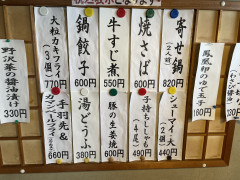 税込表示となります
寄せ鍋
820円
焼さば
600円
牛すじ煮
550円
鍋餃子
600円
大粒カキフライ
(3個)
770円
シューマイ
(2個)
440円
子持ちししゃも
(4尾)
490円
豚の生姜焼
600円
湯どうふ
380円
手羽先&
660円
野沢菜の醤油漬け
330円
鳳凰卵のゆで玉子
160円
110円